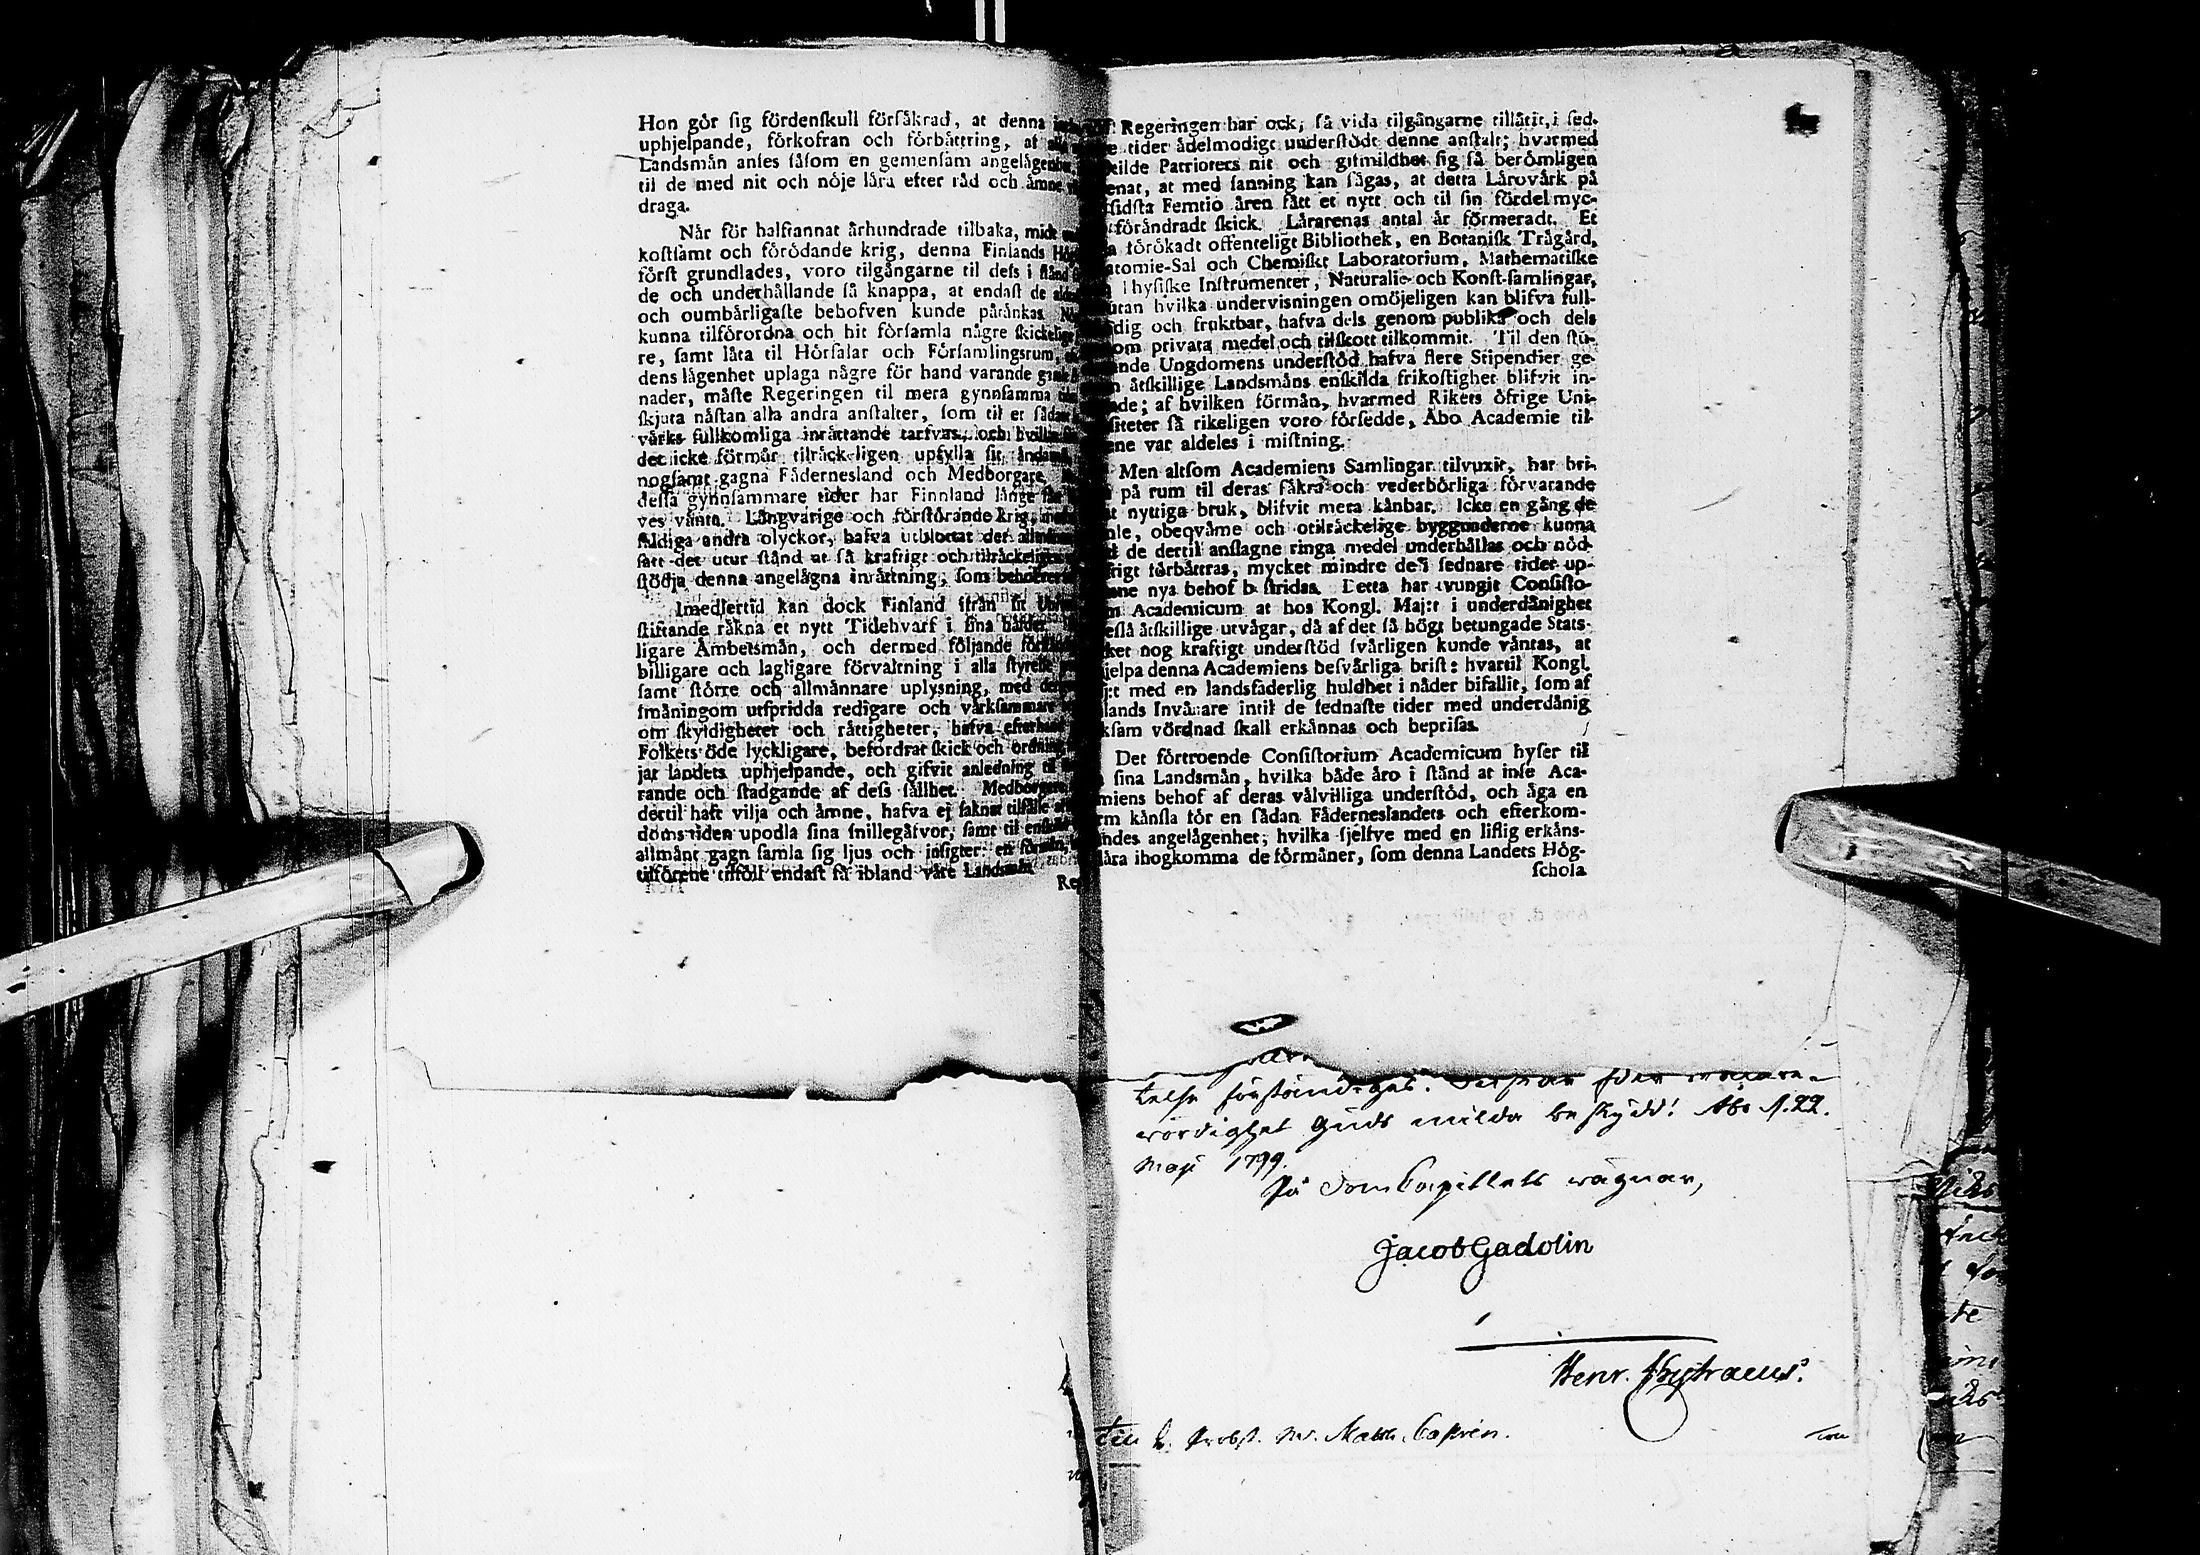 Hon gör sig fördenſkull förſåkrad, at denna
uphjelpande, förkofran och förbåttring, af
Landsmån anſes ſåſom en gemenſam angelågen
til de med nit och nöje låra efter råd och åmne
draga.
Når för halfſannat århundrade tilbaka, midt
koſtſamt och förödande krig, denna Finlands Hög
förſt grundlades, voro tilgångarne til deſs i ſtånd
de och underhållande ſå knappa, at endaſt de
och oumbårligaſte behofven kunde påtånkas
kunna tilförordna och hit förſamla någre ſkickelige
re, ſamt låta til Hörſalar och Förſamlingsrum,
dens lågenhet uplaga någre för hand varande
nader, måſte Regeringen til mera gynnſamma
ſkjuta nåſtan alla andra anſtalter, ſom til et ſådant
vårks fullkomliga inråttande tarfvas, och hvilka
det icke förmår tilråckeligen upfylla ſit åndamål,
nogſamt gagna Fådernesland och Medborgare.
deſſa gynnſammare tider har Finnland långe
ves vånta. Långvarige och förſtörande krig,
fåldiga andra olyckor, hafva utblottat det
ſatt det utur ſtånd at ſå kraftigt och tilråckeligen
ſtödja denna angelågna inråttning, ſom behofvet
Imedlertid kan dock Finland ifrån ſit
ſtiftande råkna et nytt Tidehvarf i ſina håfder.
ligare Åmbetsmån, och dermed följande
billigare och lagligare förvaltning i alla ſtyrelſe
ſamt ſtörre och allmånnare uplysning, med
ſmåningom utſpridda redigare och vårkſammare
om ſkyldigheter och råttigheter, hafva efterhand
Folkets öde lyckligare, befordrat ſkick och ordning
jat landets uphjelpande, och gifvit anledning til
rande och ſtadgande af deſs ſållhet. Medborgare
dertil haft vilja och åmne, hafva ej ſaknat tilfålle
doms-tiden upodla ſina ſnillegåfvor, ſamt til
allmånt gagn ſamla ſig ljus och inſigter: en förmån,
tilförene tilföll endaſt få ibland våre Landsmån
Re
Regeringen har ock, ſå vida tilgångarne tillåtit, i ſed-
tider ådelmodigt underſtödt denne anſtalt; hvarmed
ſkilde Patrioters nit och gifmildhet ſig ſå berömligen
enat, at med ſanning kan ſågas, at detta Lårovårk på
ſidſta Femtio åren fått et nytt och til ſin fördel myc-
förändradt ſkick. Lårarenas antal år förmeradt. Et
förökadt offenteligt Bibliothek, en Botaniſk Trågård,
atomie-Sal och Chemiſkt Laboratorium, Mathematiſke
Phyſiſke Inſtrumenter, Naturalie- och Konſt-ſamlingar,
utan hvilka undervisningen omöjeligen kan blifva full-
dig och fruktbar, hafva dels genom publika och dels
om privata medel och tilſkott tilkommit. Til den ſtu-
ande Ungdomens underſtöd hafva flere Stipendier ge-
åtſkillige Landsmåns enſkilda frikoſtighet blifvit in-
de; af hvilken förmån, hvarmed Rikets öfrige Uni-
ſiteter ſå rikeligen voro förſedde, Åbo Academie til-
ene var aldeles i miſtning.
Men altſom Academiens Samlingar tilvuxit, har bri-
på rum til deras ſåkra och vederbörliga förvarande
nyttiga bruk, blifvit mera kånbar. Icke en gång de
le, obeqvåme och otilråckelige byggnderne kunna
de dertil anſlagne ringa medel underhållas och nöd-
rigt förbåttras, mycket mindre de i ſednare tider up-
ne nya behof beſtridas. Detta har tvungit Conſiſto-
Academicum at hos Kongl. Maj:t i underdånighet
eſlå åtſkillige utvågar, då af det ſå högt betungade Stats-
ket nog kraftigt underſtöd ſvårligen kunde våntas, at
jelpa denna Academiens beſvårliga briſt: hvartil Kongl.
j:t med en landsfaderlig huldhet i nåder bifallit, ſom af
lands Invånare intil de ſednaſte tider med underdånig
kſam vördnad ſkall erkånnas och bepriſas.
Det förtroende Conſiſtorium Academicum hyſer til
ſina Landsmån, hvilka både åro i ſtånd at inſe Aca-
miens behof af deras vålvilliga underſtöd, och åga en
rm kånſla för en ſådan Fåderneslandets och efterkom-
andes angelågenhet; hvilka ſjelfve med en liflig erkåns-
låra ihogkomma de förmåner, ſom denna Landets Hög-
ſchola
wördighet Guds milda beskydd! Åbo d. 22.
Maji 1799.
På DomCapitlets wägnar,
Jacob Gadolin
Henr.
Till H. Probst. Mr. Matth. Castrén.